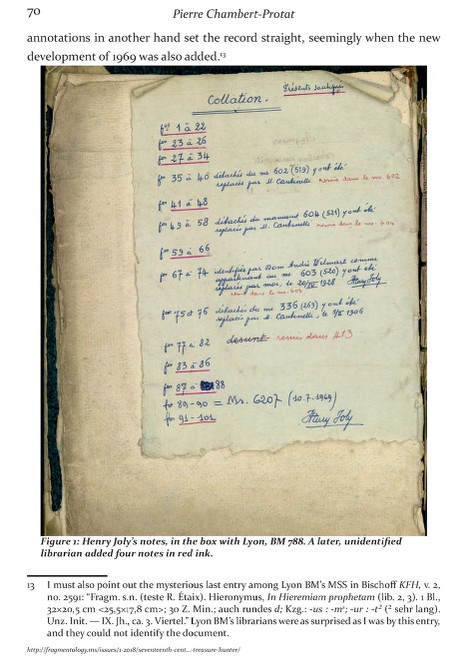 70
Pierre Chambert-Protat
annotations in another hand set the record straight, seemingly when the new
development of 1969 was also added.¹³
Présents sauf
Collation.
fos 1 à 22
fos 23 à 26
fos 27 à 34
fos 35 à 40 détachés du ms 602 (519) y ont été
replacés par M. Cantinelli remis dans le ms 602
fos 41 à 48
fos 49 à 58 détachés du manuscrit 604 (521) y ont été
replacés par M. Cantinelli remis dans le ms. 604
fos 59 à 66
fos 67 à 74 identifiés par Dom André Wilmart comme
appartenant au ms 603 (520) y ont été
replacés par moi, le 20/IV 1928 Henry Joly
remis dans le ms. 603
fos 75 et 76 détachés du ms 336 (263) y ont été
replacés par M. Cantinelli, le 1906
fos 77 à 82 desunt remis dans 413
fos 83 à 86
fos 87 à 88
fos 89-90 = Ms. 6207 (10.7.1969)
fos 91-101
Henry Joly
Figure 1: Henry Joly's notes, in the box with Lyon, BM 788. A later, unidentified
librarian added four notes in red ink.
13 I must also point out the mysterious last entry among Lyon BM's MSS in Bischoff KFH, v. 2,
no. 2591: "Fragm. s.n. (teste R. Étaix). Hieronymus, In Hieremiam prophetam (lib. 2, 3). 1 Bl.,
32×20,5 cm <25,5×17,8 cm>; 30 Z. Min.; auch rundes d; Kzg.: -us : -m'; -ur : -t² (² sehr lang).
Unz. Init. — IX. Jh., ca. 3. Viertel." Lyon BM's librarians were as surprised as I was by this entry,
and they could not identify the document.
http://fragmentology.ms/issues/1-2018/seventeenth-cent...-treasure-hunter/